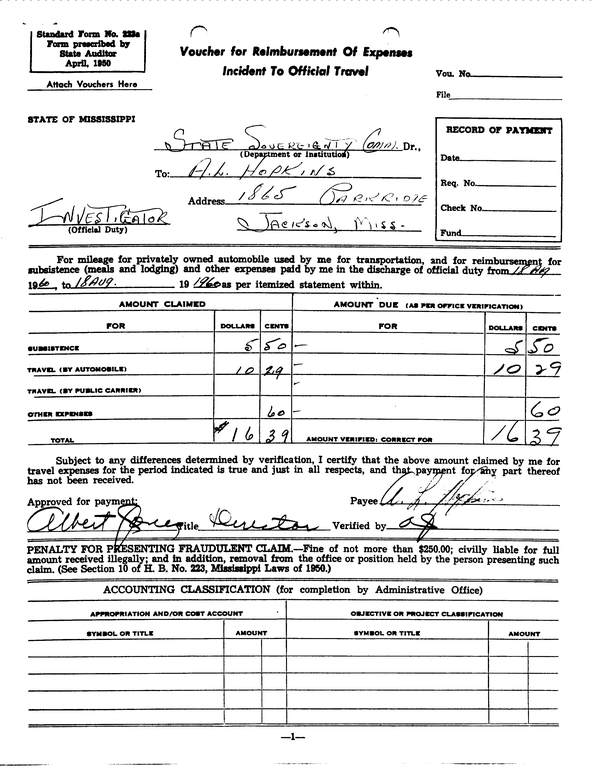 Standard Form No. 223a
Form prescribed by
State Auditor
April, 1950
Attach Vouchers Here
Voucher for Reimbursement Of Expenses
Incident To Official Travel
Vou. No.
File
STATE OF MISSISSIPPI
RECORD OF PAYMENT
Date
Req. No.
Check No.
Fund
STATE SOVEREIGNTY COMM. Dr.,
(Department or Institution)
To: A.L. HOPKINS
Address 1865 PARKRIDGE
JACKSON, MISS.
INVESTIGATOR
(Official Duty)
For mileage for privately owned automobile used by me for transportation, and for reimbursement for
subsistence (meals and lodging) and other expenses paid by me in the discharge of official duty from 18
1960, to 18 AUG. 19 1960 as per itemized statement within.
AMOUNT CLAIMED AMOUNT DUE (AS PER OFFICE VERIFICATION)
FOR DOLLARS CENTS FOR DOLLARS CENTS
SUBSISTENCE 5 50 — 5 50
TRAVEL (BY AUTOMOBILE) 10 29 — 10 29
TRAVEL (BY PUBLIC CARRIER) —
OTHER EXPENSES 60 — 60
TOTAL $ 16 39 AMOUNT VERIFIED: CORRECT FOR 16 39
Subject to any differences determined by verification, I certify that the above amount claimed by me for
travel expenses for the period indicated is true and just in all respects, and that payment for any part thereof
has not been received.
Approved for payment: Payee A. L. Hopkins
Albert Jones Title Director Verified by aj
PENALTY FOR PRESENTING FRAUDULENT CLAIM.—Fine of not more than $250.00; civilly liable for full
amount received illegally; and in addition, removal from the office or position held by the person presenting such
claim. (See Section 10 of H. B. No. 223, Mississippi Laws of 1950.)
ACCOUNTING CLASSIFICATION (for completion by Administrative Office)
APPROPRIATION AND/OR COST ACCOUNT OBJECTIVE OR PROJECT CLASSIFICATION
SYMBOL OR TITLE AMOUNT SYMBOL OR TITLE AMOUNT
—1—